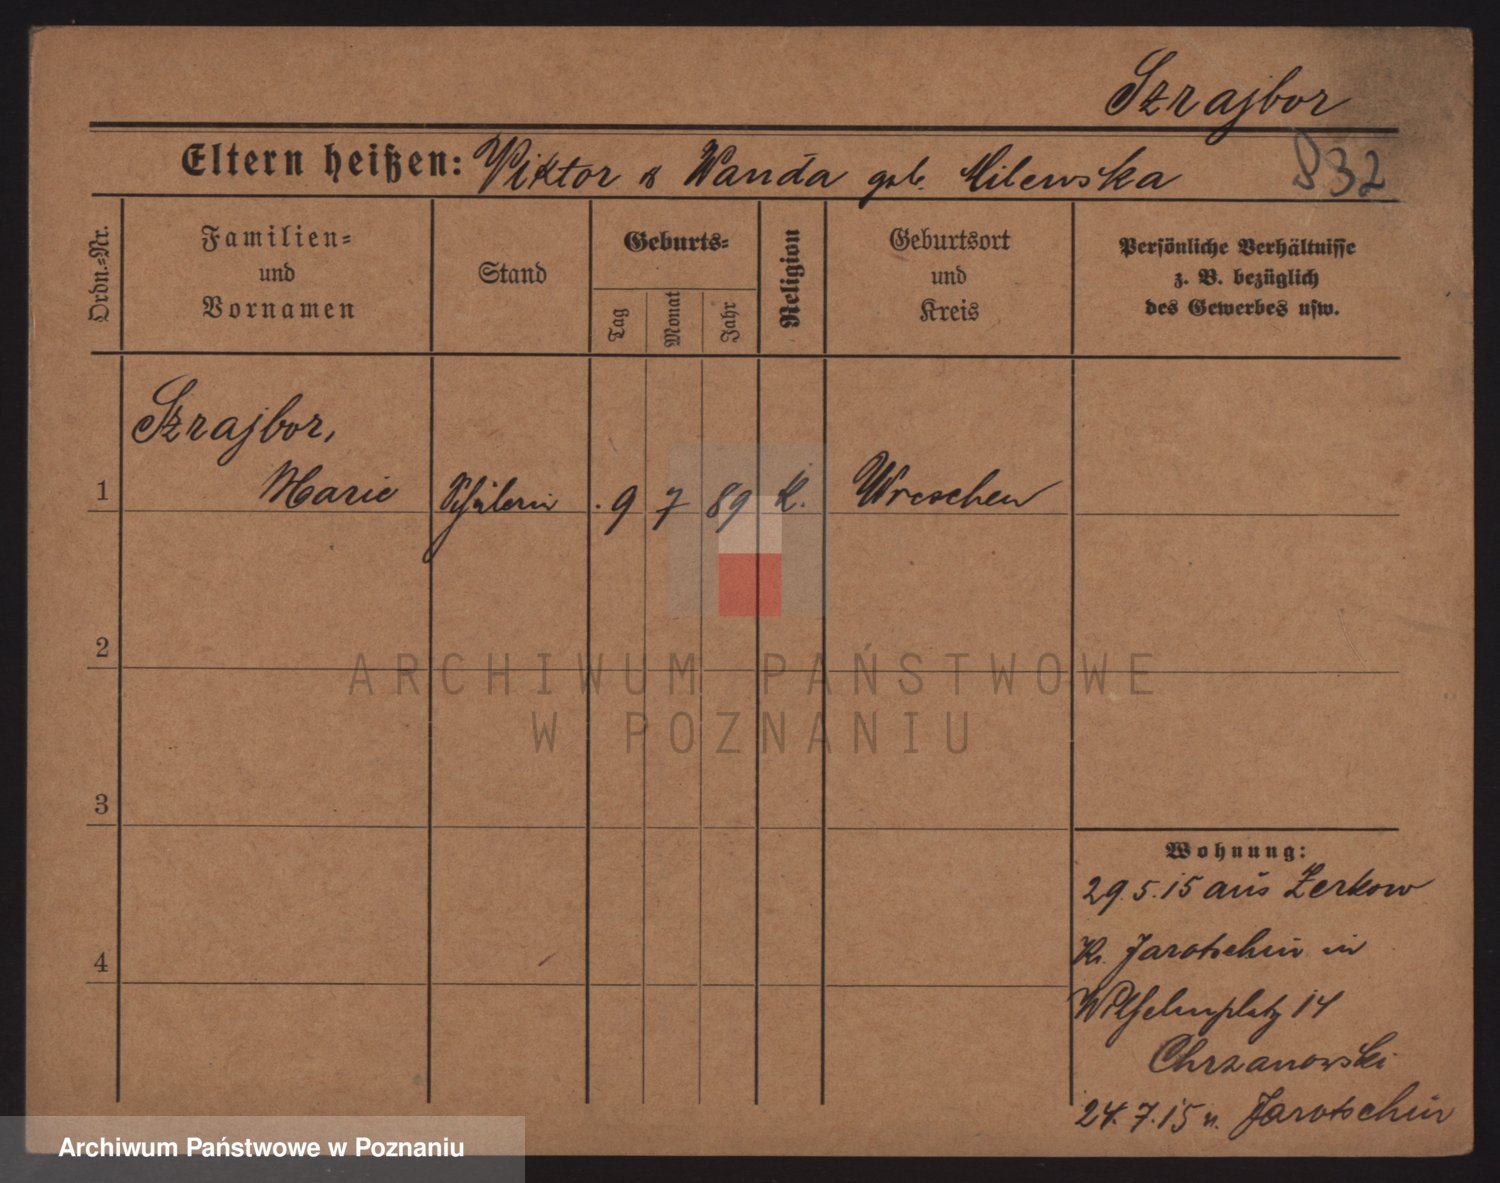 Szrajbor
Eltern heißen: Viktor & Wanda geb. Milewska
832
Ordn.=Nr.
Familien=
und
Vornamen
Stand
Geburts=
Tag
Monat
Jahr
Religion
Geburtsort
und
Kreis
Persönliche Verhältnisse
z. B. bezüglich
des Gewerbes usw.
Szrajbor,
1 Marie Schülerin 9 7 89 K. Wreschen
2
3
4
Wohnung:
29.5.15 aus Zerkow
Kr. Jarotschin in
Wilhelmplatz 14
Chrzanowski
24.7.15 n. Jarotschin
ARCHIWUM PAŃSTWOWE
W POZNANIU
Archiwum Państwowe w Poznaniu